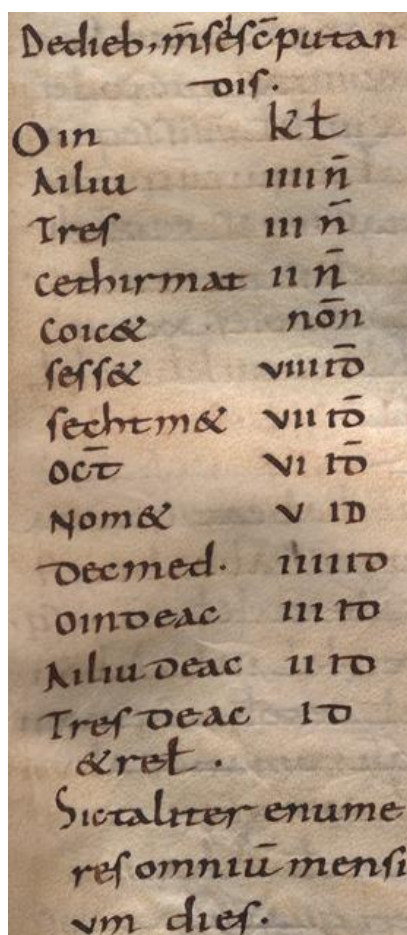 De dieb, m̄sēsc̄putan
dis.
Oin kł
Ailiu iiii n̄
Tres iii n̄
cethirmat ii n̄
Coic& nōn
sess& viiii id̄
sechtm& vii id̄
oct̄ vi id̄
Nom& v id
Decmed. iiiii id
oindeac iii id
Ailiu deac ii id
Tres deac id
& reł .
Sic taliter enume
res omniū mensi
um dies.